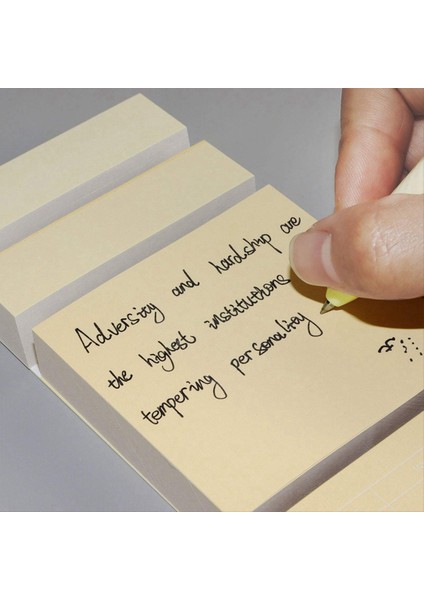 Adversity and hardship are
the highest institutions
tempering personality